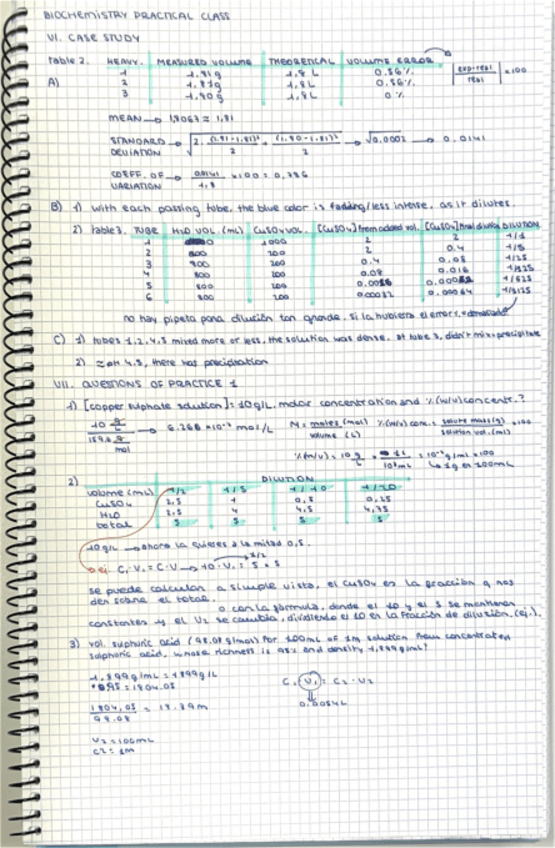 BIOCHEMISTRY PRACTICAL CLASS
VI. CASE STUDY
Table 2. HEAVY. MEASURED VOLUME THEORETICAL VOLUME ERROR
A) 1 1,81g 1,8 L 0.56%
2 1,81g 1,8L 0.56%
3 1,80g 1,8L 0 %
exp-real / real x100
MEAN → 1,8067 ≈ 1,81
STANDARD DEVIATION → √ 2. (1.81-1,81)² / 2 + (1.80-1.81)² / 2 → √0.0002 → 0.0141
COEFF. OF VARIATION → 0,0141 / 1,8 x100 = 0,786
B) 1) with each passing tube, the blue color is fadding/less intense, as it dilutes.
2) table3. TUBE H2O VOL. (mL) CuSO4 VOL. [CuSO4] from added vol. [CuSO4] final dilution DILUTION
1 0 1000 2 2 1/1
2 800 200 2 0.4 1/5
3 800 200 0.4 0.08 1/25
4 800 200 0.08 0.016 1/125
5 800 200 1/625
6 800 200 1/3125
no hay pipeta para dilución tan grande. si la hubiera el error x
C) 1) tubes 1,2,4,5 mixed more or less, the solution was dense. at tube 3, didn't mix=precipitate
2) ≈ at 4,5, there has precipitation
VII. QUESTIONS OF PRACTICE 1
1) [copper sulphate solution] = 10g/L. molar concentration and %(w/v) concentr.?
10 g/L / 159.6 g/mol → 6.266 x10⁻² mol/L M = moles (mol) / volume (L) %(w/v) conc. = solute mass(g) / solution vol. (ml) x100
%(w/v) = 10 g/L x 1L / 10³mL = 10⁻² g/mL x100
↳ 1g en 100mL
2) DILUTION
volume (mL) 1/2 1/5 1/10 1/20
CuSO4 2,5 1 0,5 0,25
H2O 2,5 4 4,5 4,75
total 5 5 5 5
10g/L → ahora la quieres a la mitad 0,5.
ej. C1·V1 = C·V → 10·V1 = 5 × 5
x1/2
se puede calcular a simple vista, el CuSO4 es la fracción q nos
den sobre el total.
o con la fórmula, donde el 10 y el 5 se mantienen
constantes y el V2 se cambia, dividiendo el 10 en la fracción de dilución. (ej.).
3) vol. suphuric acid (98.08 g/mol) for 100mL of 1m solution from concentrated
sulphuric acid, whose richness is 95% and density 1,899g/mL?
1,899g/mL = 1899g/L
·0.95 = 1804.05
C1·V1 = C2·V2
0.0054L
1804,05 / 98.08 = 18.39m
V2 = 100mL
C2 = 1m